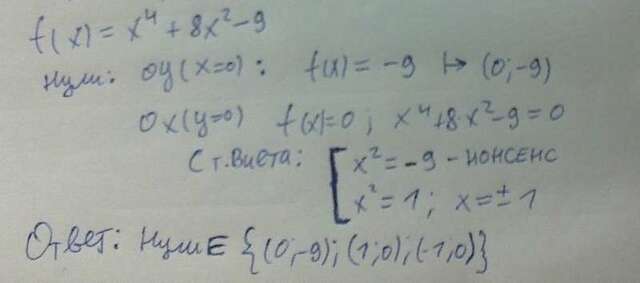 f(x) = x⁴ + 8x² - 9
Нули: Oy (x=0) : f(x) = -9 ↦ (0;-9)
Ox (y=0) f(x)=0 ; x⁴+8x²-9=0
С т.Виета: [ x² = -9 - нонсенс
x² = 1 ; x = ± 1
Ответ: Нули ∈ {(0;-9); (1;0); (-1;0)}